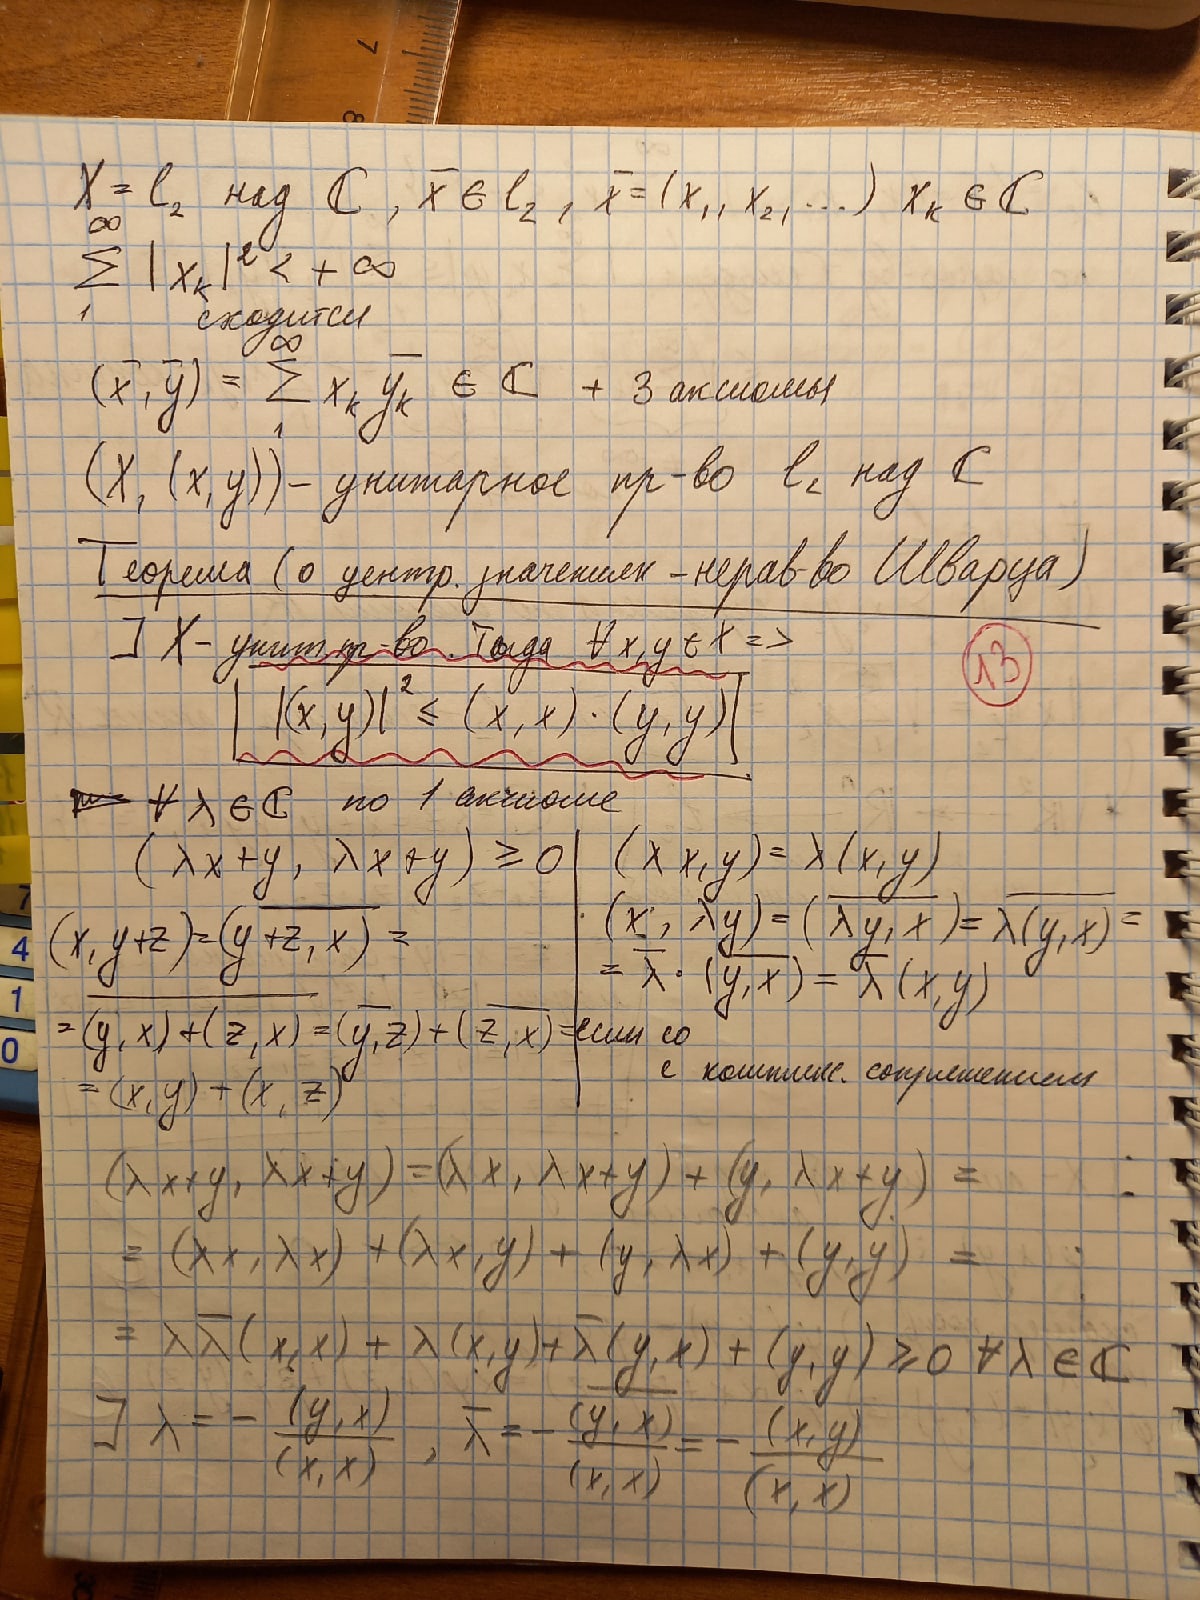 X = l₂ над ℂ, x̄ ∈ l₂, x̄ = (x₁, x₂, ...) xₖ ∈ ℂ
∑₁^∞ |xₖ|² < +∞
сходится
(x̄, ȳ) = ∑₁^∞ xₖ ȳₖ ∈ ℂ + 3 аксиомы
(X, (x,y)) – унитарное пр-во l₂ над ℂ
Теорема (о центр. значениях – нерав-во Шварца)
] X – унит. пр-во. Тогда ∀ x,y ∈ X =>
|(x,y)|² ≤ (x,x)·(y,y)
13
∀ λ ∈ ℂ по 1 аксиоме
(λx+y, λx+y) ≥ 0
(x, y+z) = \overline{(y+z, x)} =
= \overline{(y,x)+(z,x)} = \overline{(y,z)} + \overline{(z,x)} =
= (x,y) + (x,z)
(λx, y) = λ(x,y)
(x, λy) = \overline{(λy, x)} = \overline{λ(y,x)} =
= λ̄ · \overline{(y,x)} = λ̄(x,y)
если со
с комплек. сопряжением
(λx+y, λx+y) = (λx, λx+y) + (y, λx+y) =
= (λx, λx) + (λx, y) + (y, λx) + (y,y) =
= λλ̄(x,x) + λ(x,y) + λ̄(y,x) + (y,y) ≥ 0 ∀λ ∈ ℂ
] λ = − (y,x)/(x,x) , λ̄ = − \overline{(y,x)}/(x,x) = − (x,y)/(x,x)
7
8
7
4
1
0